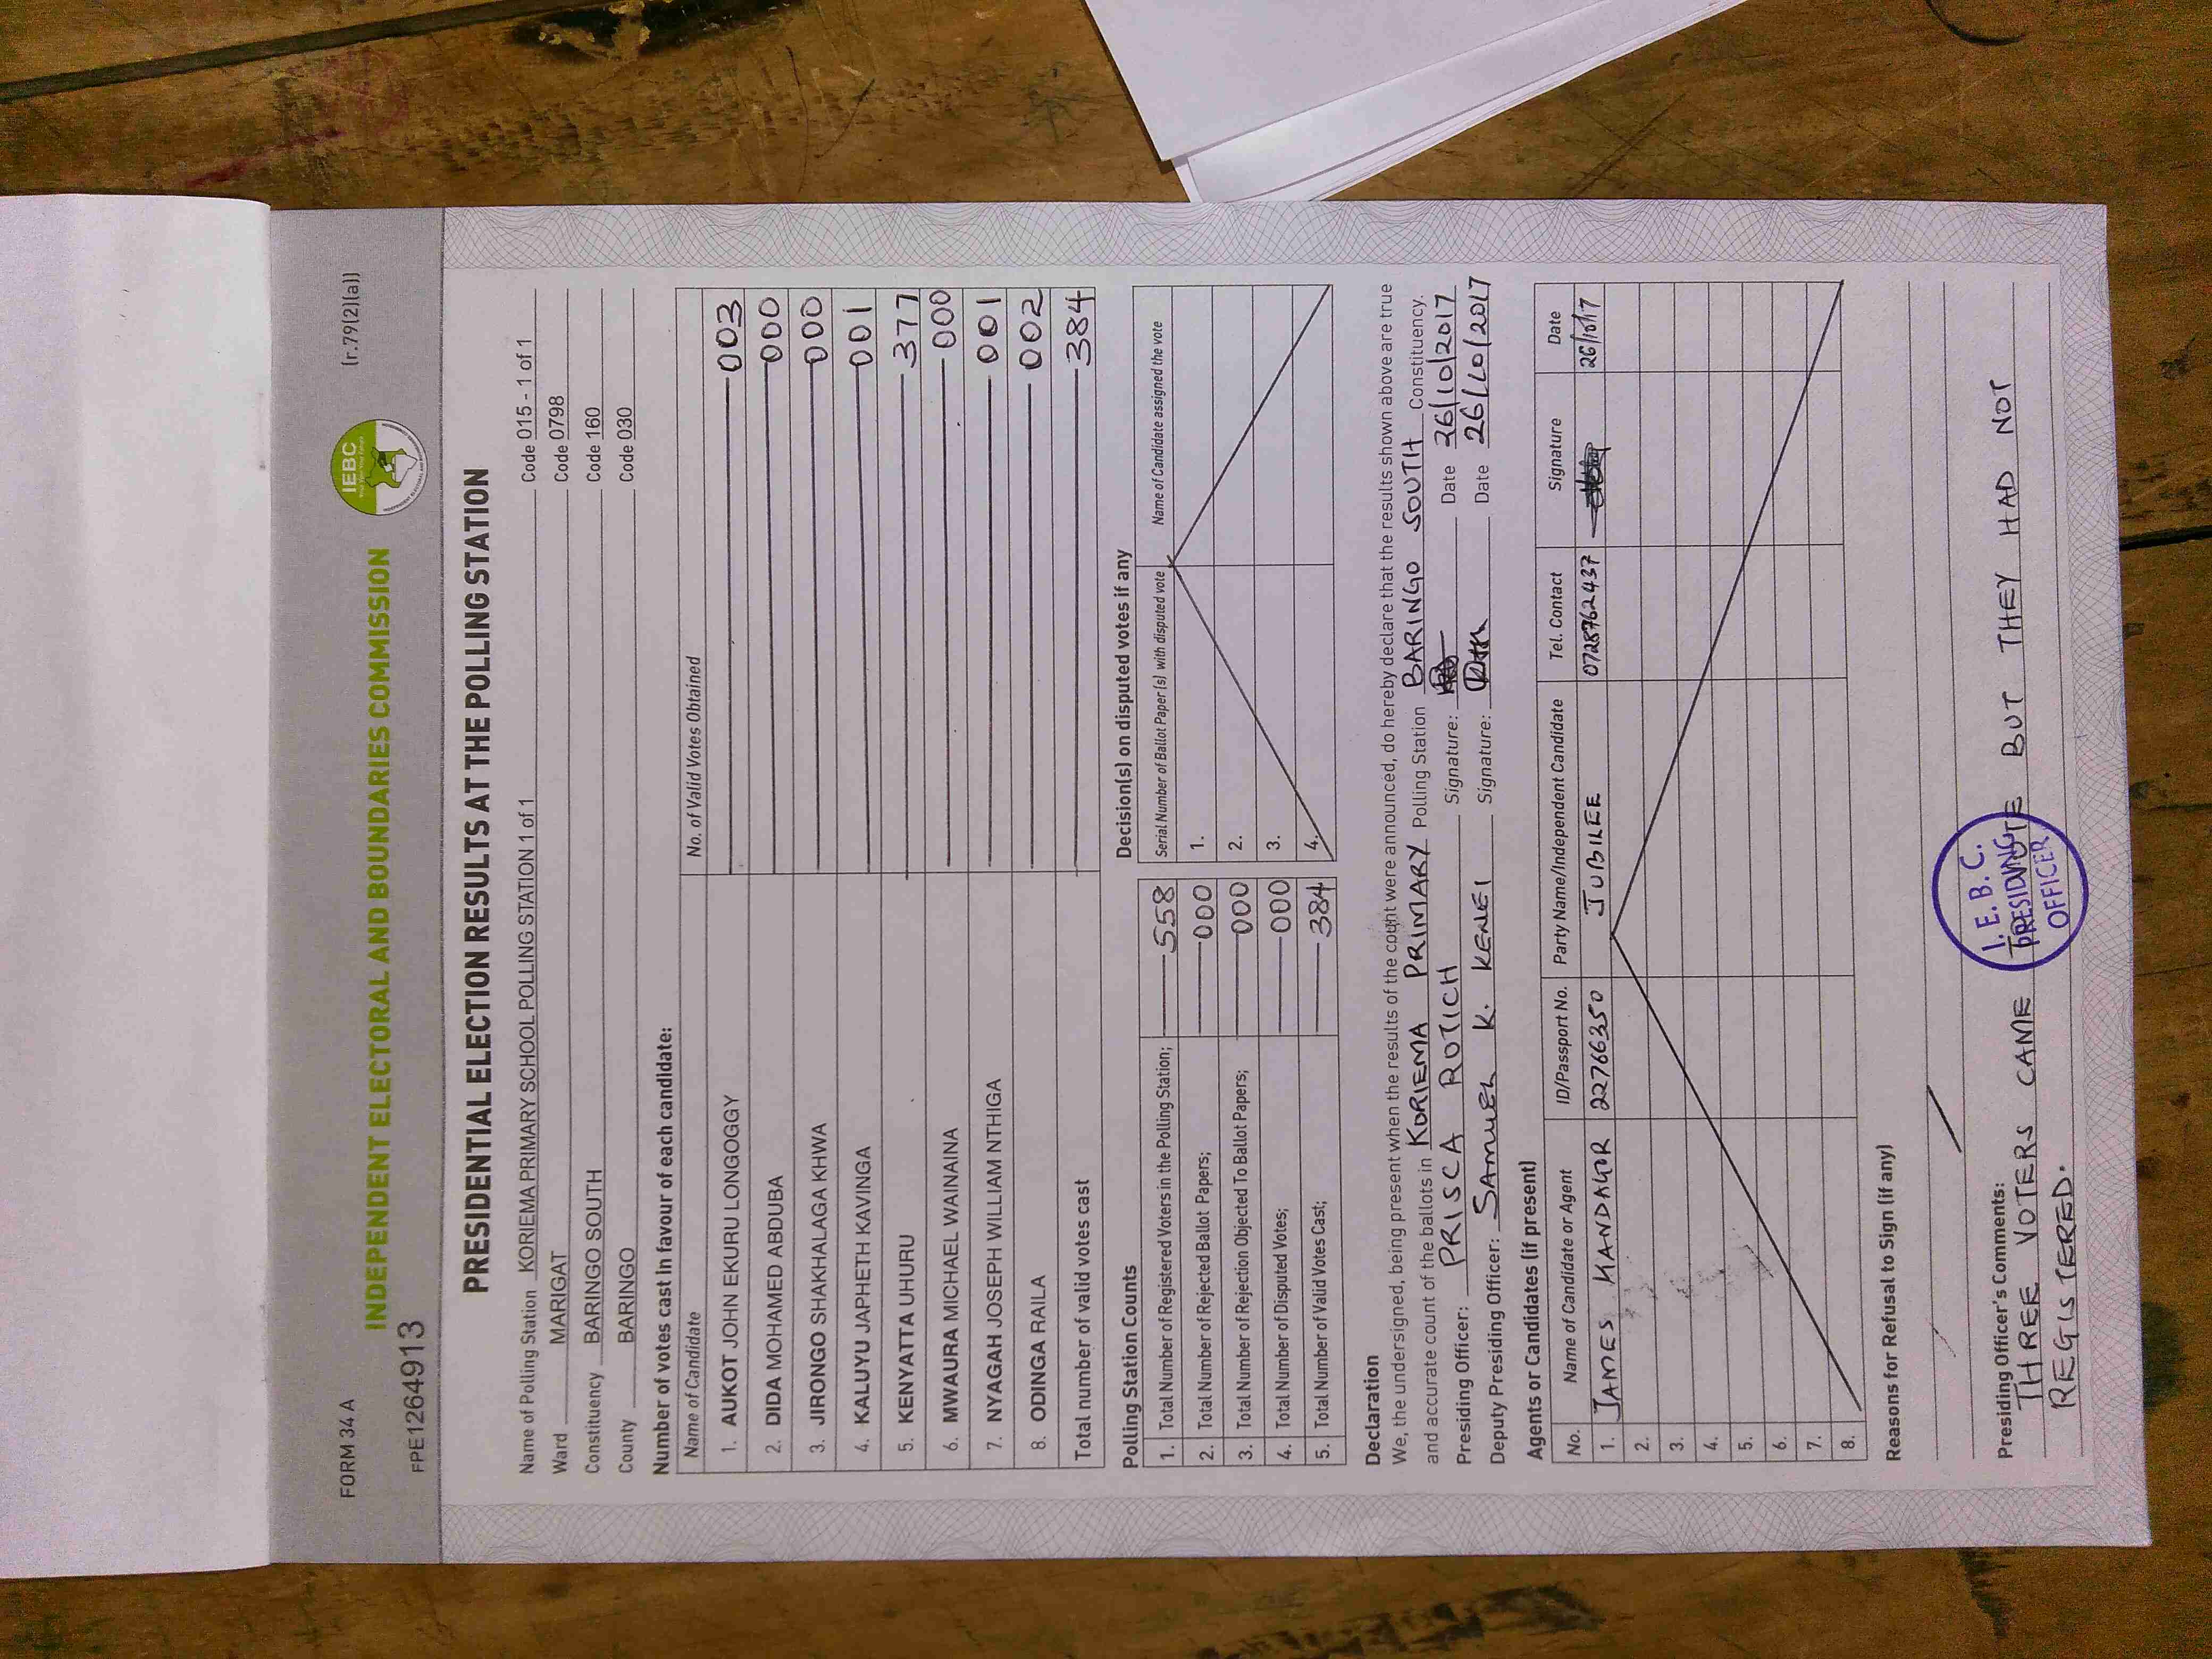 FORM 34 A
(r.79(2)(a))
INDEPENDENT ELECTORAL AND BOUNDARIES COMMISSION
IEBC
FPE1264913
PRESIDENTIAL ELECTION RESULTS AT THE POLLING STATION
Name of Polling Station KORIEMA PRIMARY SCHOOL POLLING STATION 1 of 1 Code 015 - 1 of 1
Ward MARIGAT Code 0798
Constituency BARINGO SOUTH Code 160
County BARINGO Code 030
Number of votes cast in favour of each candidate:
Name of Candidate No. of Valid Votes Obtained
1. AUKOT JOHN EKURU LONGOGGY 003
2. DIDA MOHAMED ABDUBA 000
3. JIRONGO SHAKHALAGA KHWA 000
4. KALUYU JAPHETH KAVINGA 001
5. KENYATTA UHURU 377
6. MWAURA MICHAEL WAINAINA 000
7. NYAGAH JOSEPH WILLIAM NTHIGA 001
8. ODINGA RAILA 002
Total number of valid votes cast 384
Polling Station Counts
1. Total Number of Registered Voters in the Polling Station; 558
2. Total Number of Rejected Ballot Papers; 000
3. Total Number of Rejection Objected To Ballot Papers; 000
4. Total Number of Disputed Votes; 000
5. Total Number of Valid Votes Cast; 384
Decision(s) on disputed votes if any
Serial Number of Ballot Paper(s) with disputed vote Name of Candidate assigned the vote
1.
2.
3.
4.
Declaration
We, the undersigned, being present when the results of the count were announced, do hereby declare that the results shown above are true
and accurate count of the ballots in KORIEMA PRIMARY Polling Station BARINGO SOUTH Constituency.
Presiding Officer: PRISCA ROTICH Signature: Date 26/10/2017
Deputy Presiding Officer: SAMUEL K. KENEI Signature: Date 26/10/2017
Agents or Candidates (if present)
No. Name of Candidate or Agent ID/Passport No. Party Name/Independent Candidate Tel. Contact Signature Date
1. JAMES KANDAGOR 22766350 JUBILEE 0728762437 26/10/17
2.
3.
4.
5.
6.
7.
8.
Reasons for Refusal to Sign (if any)
Presiding Officer's Comments:
THREE VOTERS CAME TO VOTE BUT THEY HAD NOT
REGISTERED.
I.E.B.C.
PRESIDING
OFFICER